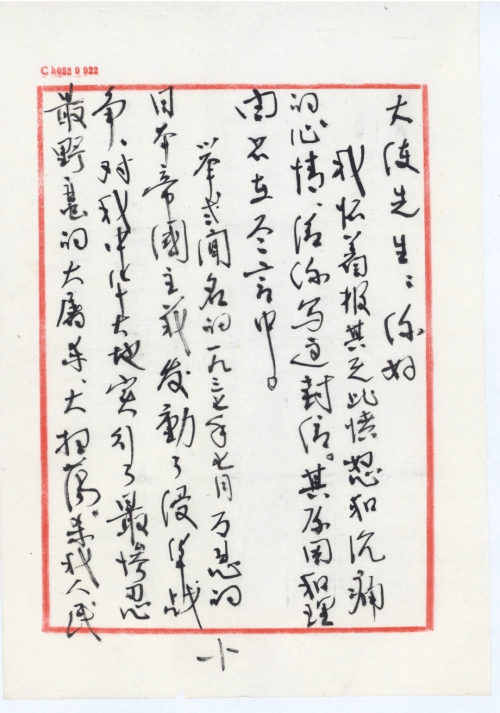 Ch052 0 922
大陵先生：你好
我怀着报其无比愤怒和沉痛
的心情、给你写这封信。其原因和理
由尽在不言中。
举世闻名的一九三七年七月万恶的
日本帝國主義发動了侵华战
争、对我中华大地实行了最惨忍
最野蛮的大屠杀、大扫荡。杀我人民